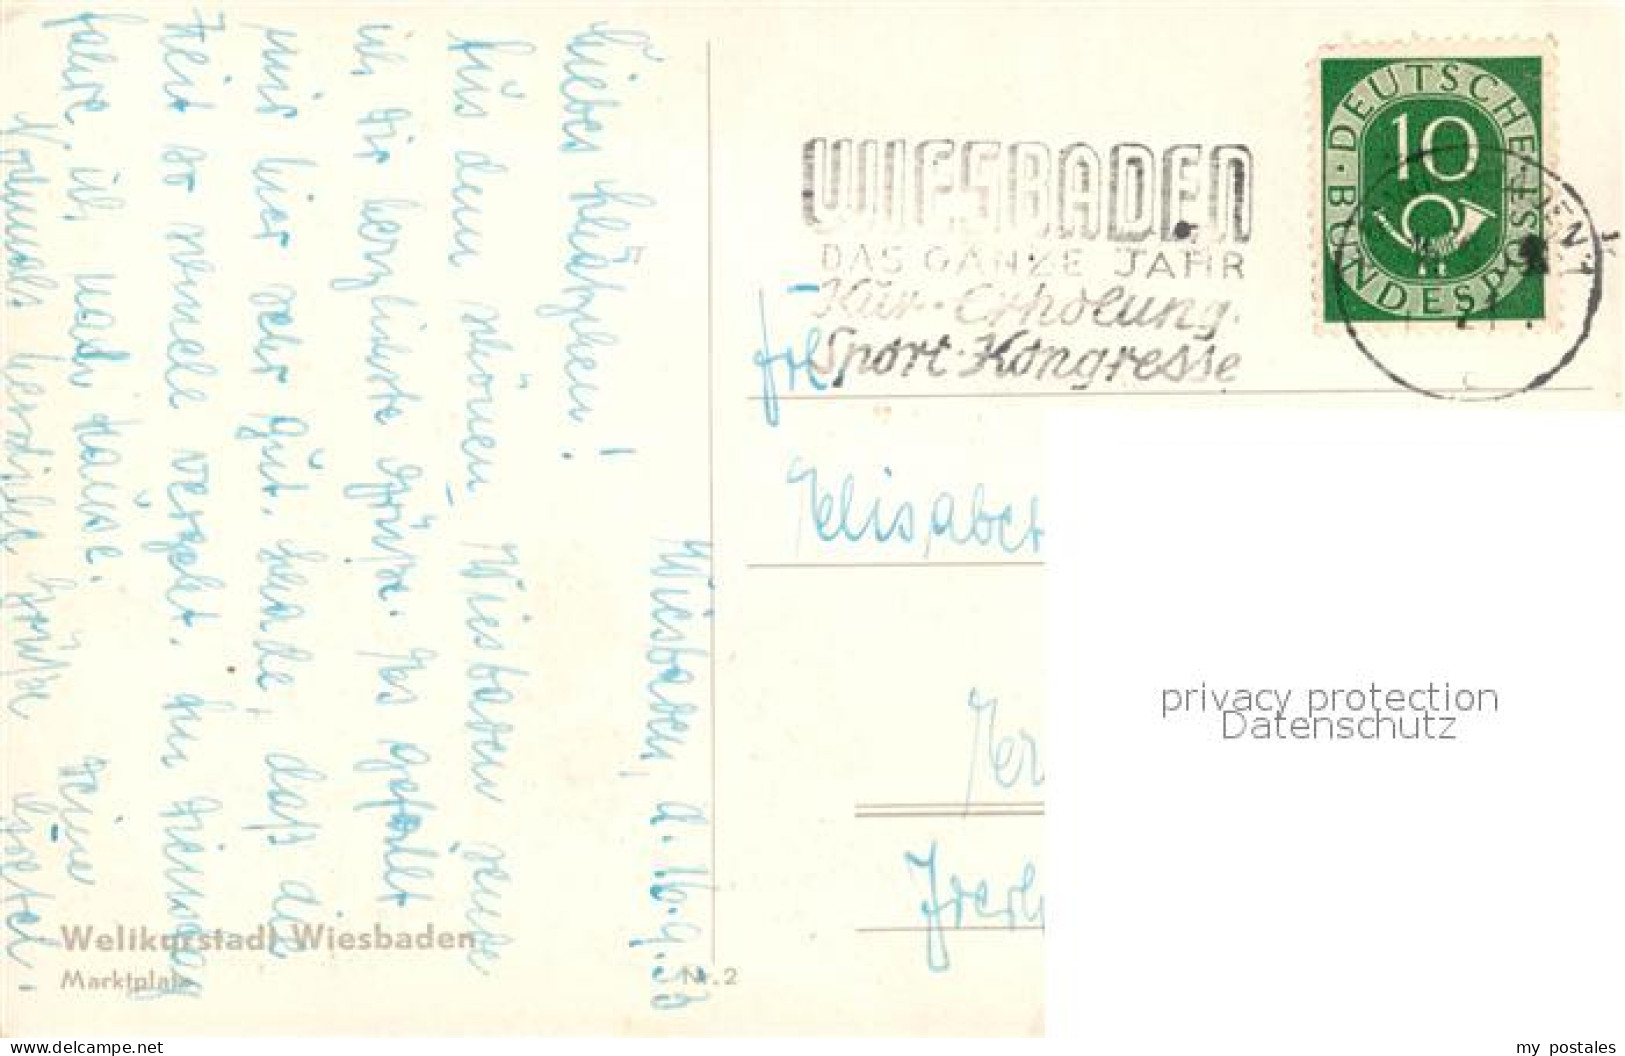 Wiesbaden, d. 16.9.53
Liebes
Aus dem schönen Wiesbaden sende
ich dir herzlichste Grüße. Es gefällt
mir hier sehr gut. Schade, daß die
Zeit so schnell vergeht. Am Dienstag
fahre ich nach Hause.
Nochmals herzliche Grüße Deine
Weltkurstadt Wiesbaden
Marktplatz
Nr. 2
WIESBADEN
DAS GANZE JAHR
Kur-Erholung.
Sport-Kongresse
DEUTSCHE BUNDESPOST
10
Frl.
Elisabet
privacy protection
Datenschutz
www.delcampe.net
my_postales